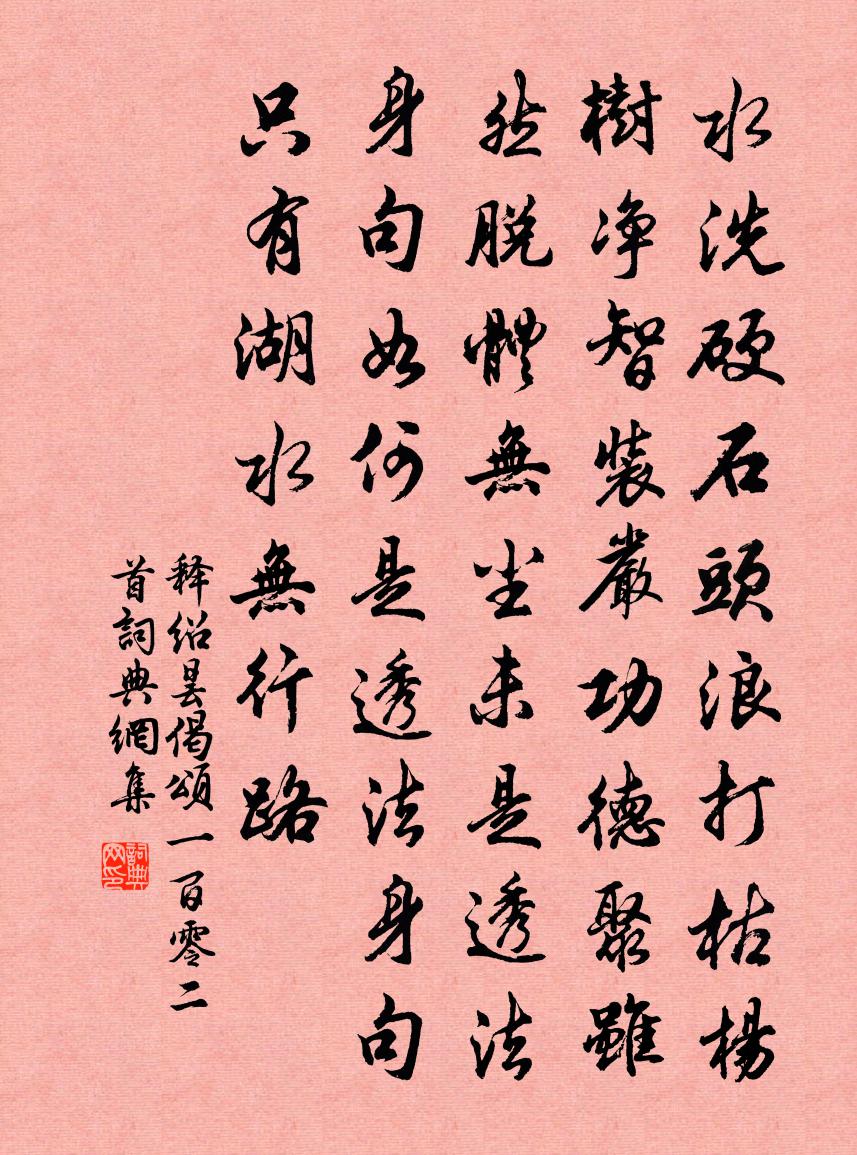 水洗硬石頭浪打枯楊
樹净智裝嚴功德聚雖
然脫體無尘未是透法
身句如何是透法身句
只有湖水無行路
释绍昙偈頌一百零二
首詞典網集
詞典网印